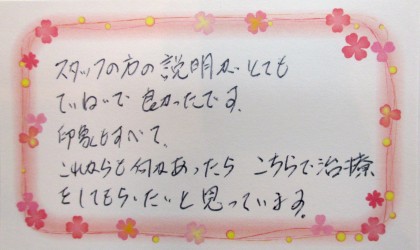 スタッフの方の説明がとても
ていねいで良かったです。
印象もすべて、
これからも何かあったら こちらで治療
をしてもらいたいと思っています。